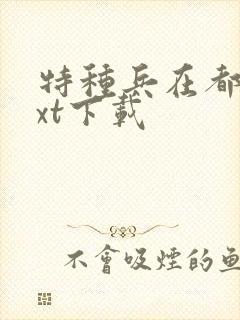 特種兵在都
xt下載
不會吸煙的魚